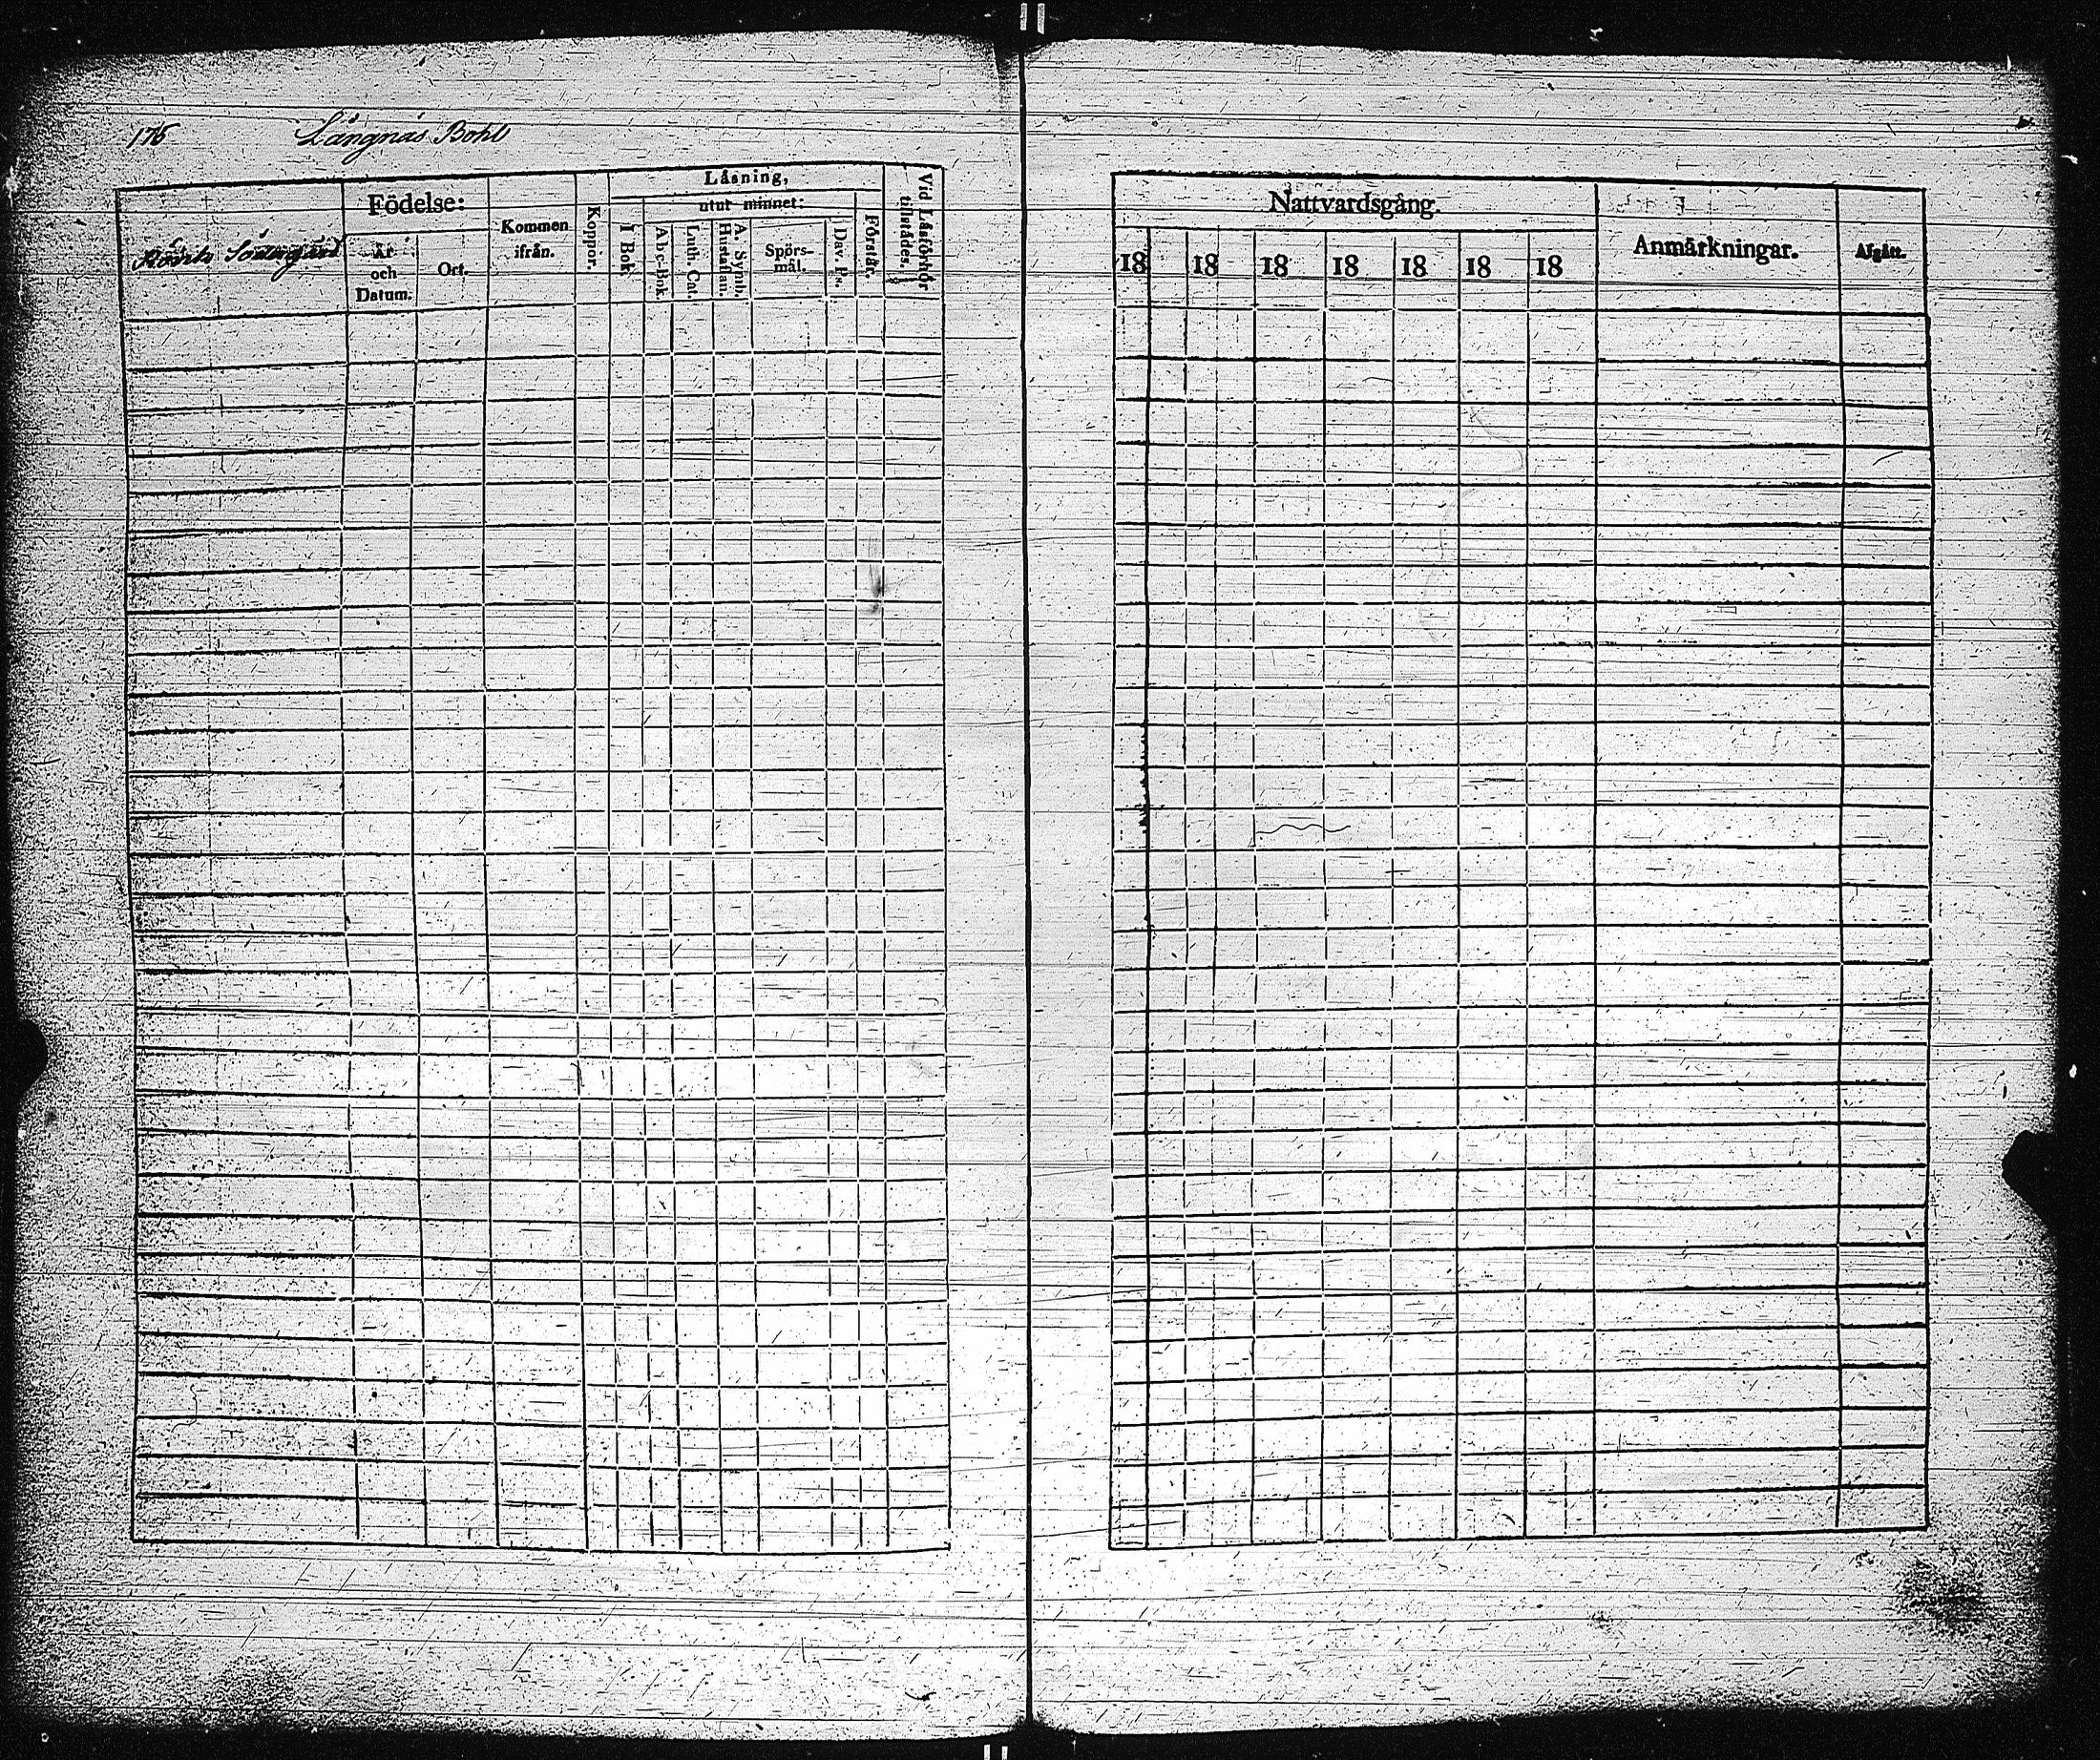 175 Långnäs Bohl
Södergård
Födelse:
År och Datum.
Ort.
Kommen ifrån.
Koppor.
Läsning,
I Bok
utur minnet:
Abc-Bok.
Luth. Cat.
A. Symb. Hustaflan.
Spörs-mål.
Dav. Ps.
Förstår.
Vid Läsförhör tillstådes.
Nattvardsgång.
18 18 18 18 18 18 18
Anmärkningar.
Afgått.